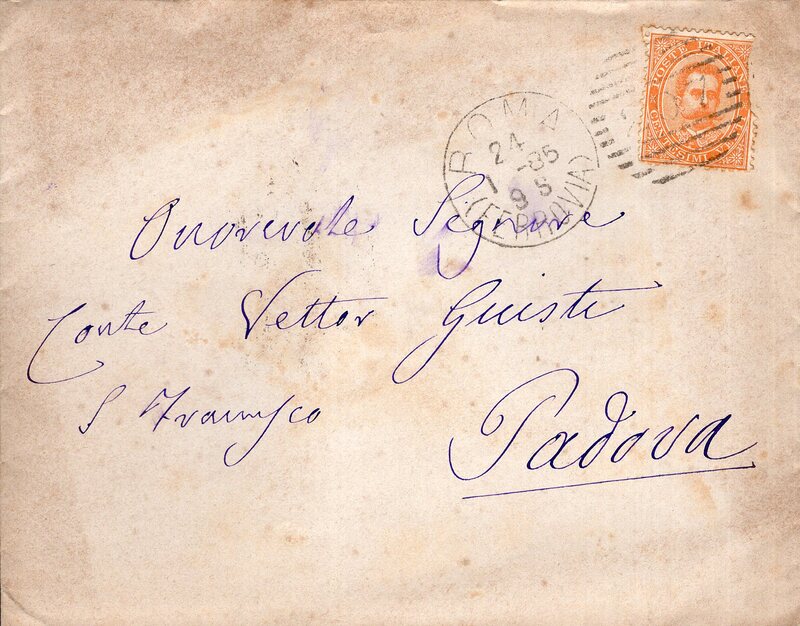 POSTE ITALIANE
CENTESIMI VENTI
ROMA
24
1 -85
9 S
(FERROVIA)
Onorevole Signore
Conte Vettor Giusti
S Francesco
Padova